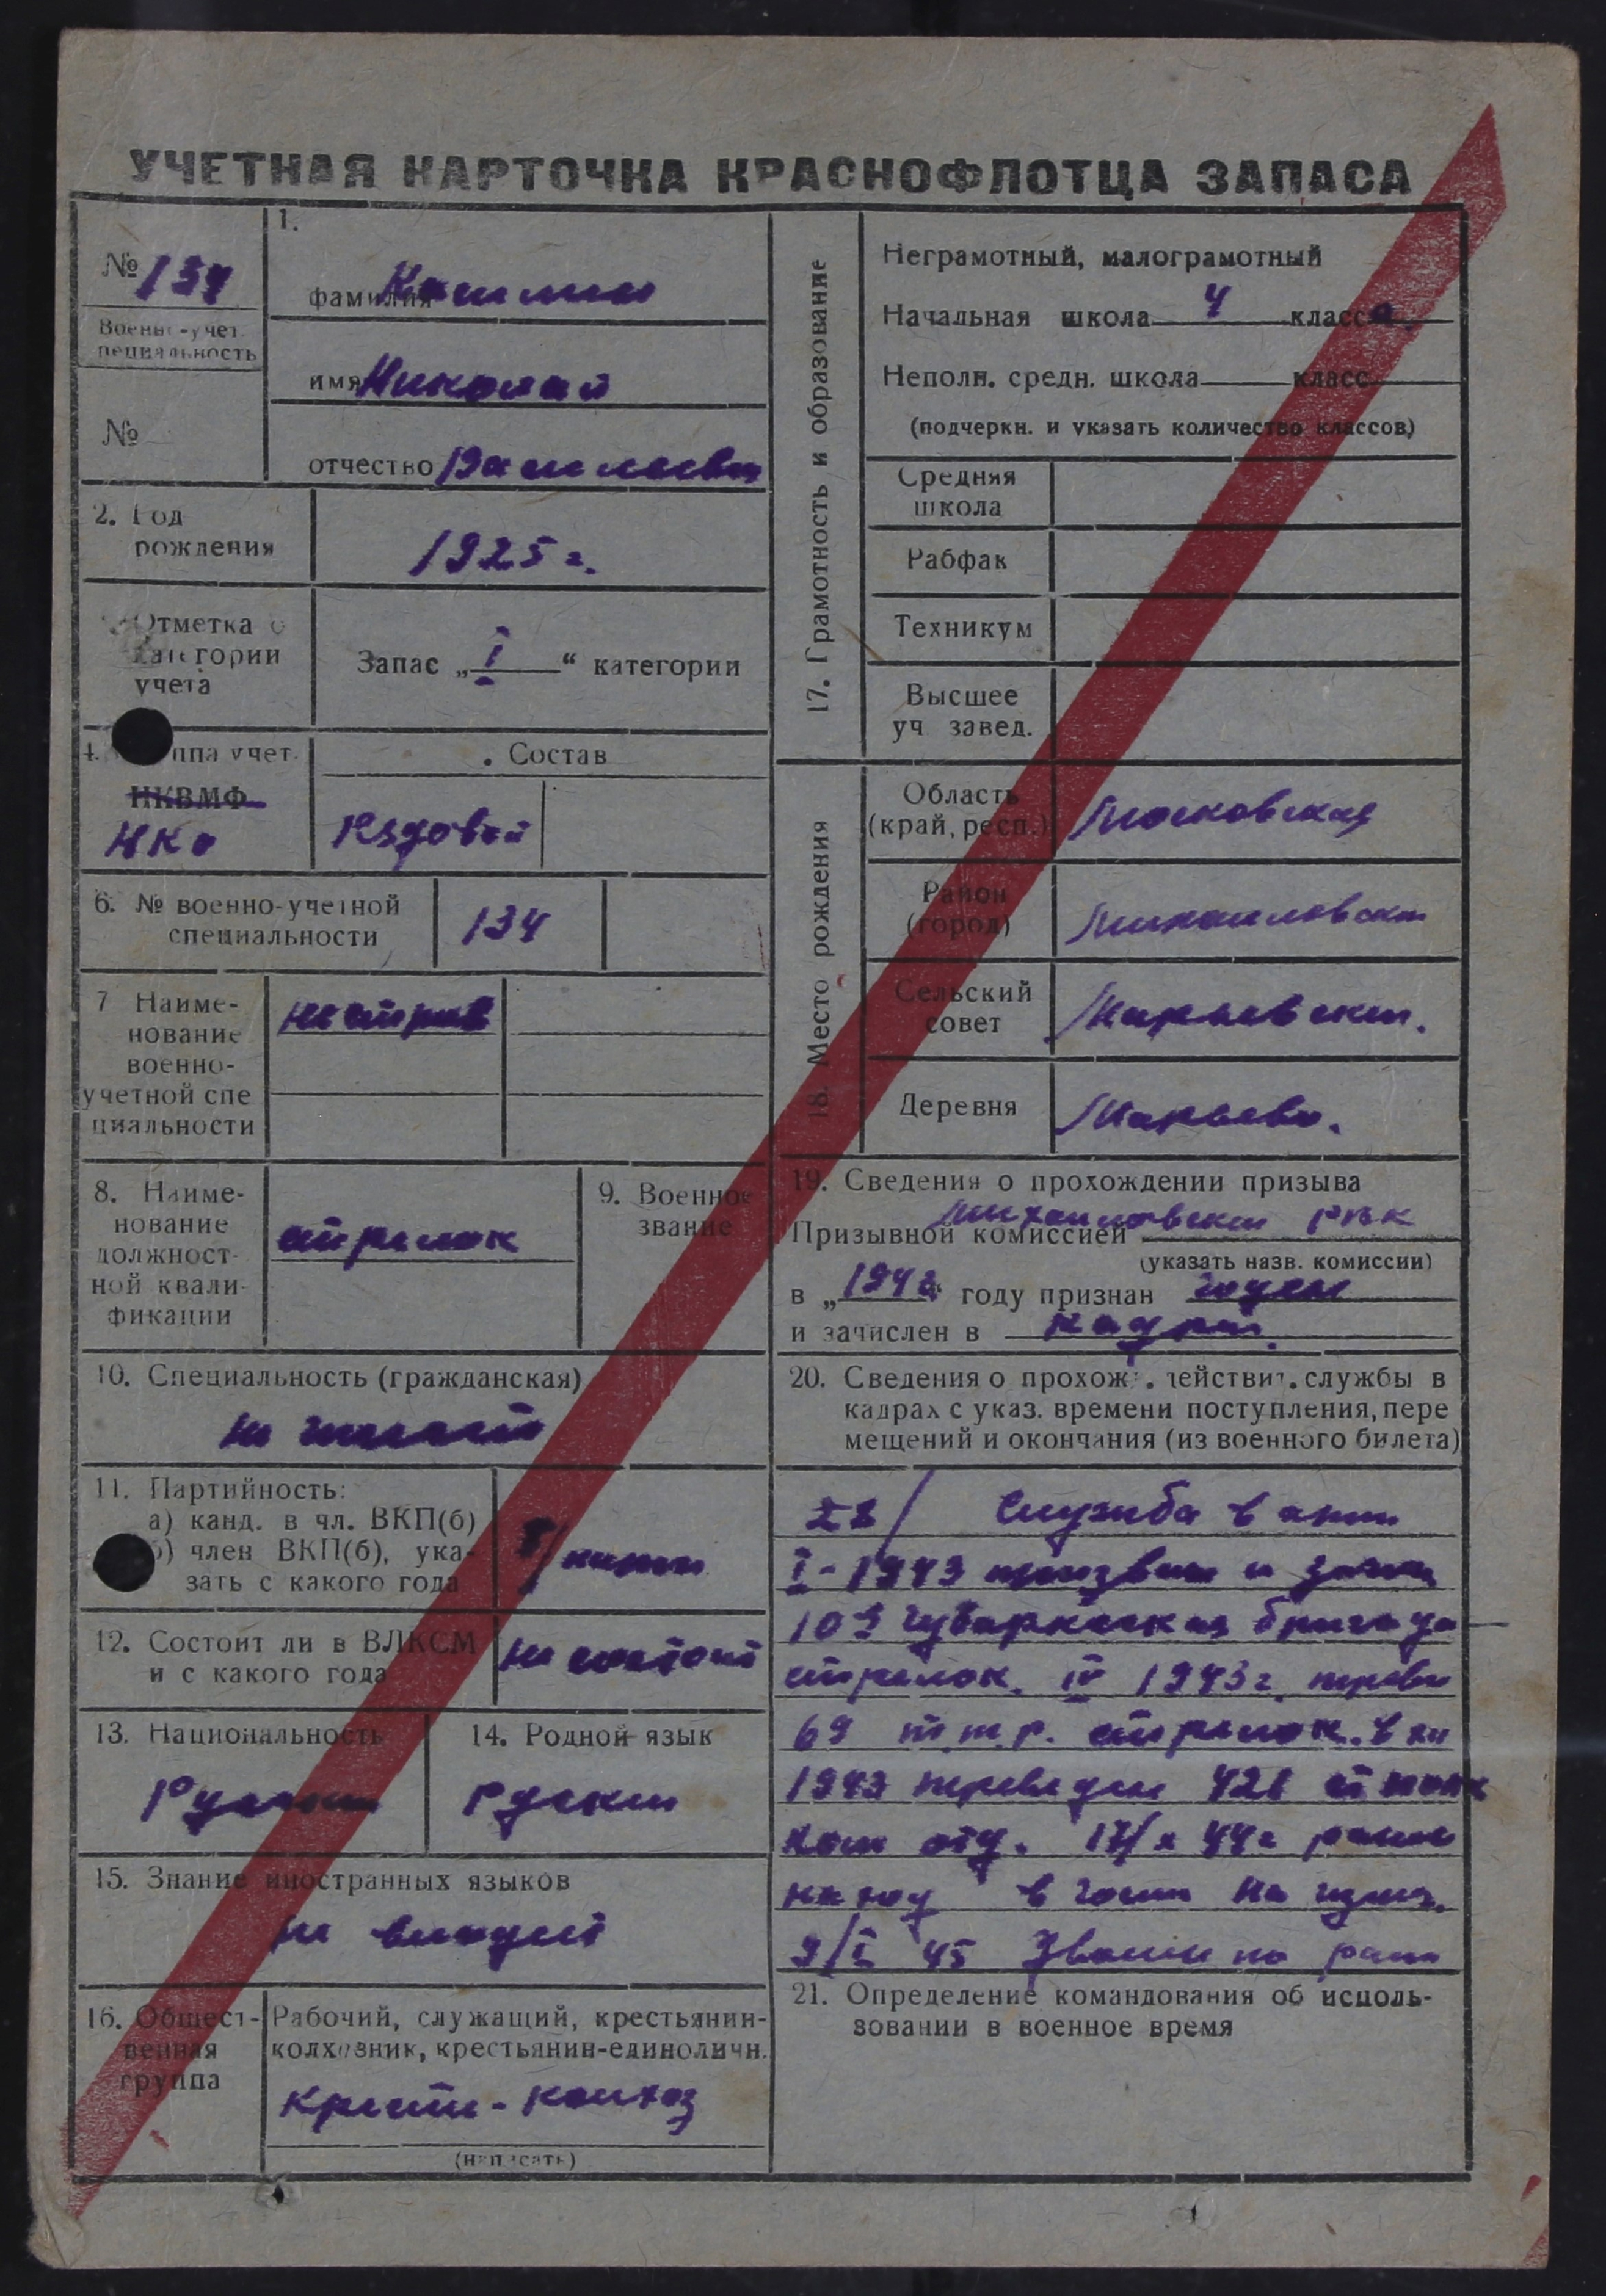 УЧЕТНАЯ КАРТОЧКА КРАСНОФЛОТЦА ЗАПАСА
№ 134
Военно-учет.
специальность
№
1.
фамилия
имя Николай
отчество
2. Год
рождения
1925 г.
Отметка о
категории
учета
Запас „ I “ категории
4. Группа учет.
НКВМФ
НКО
Состав
Рядовой
6. № военно-учетной
специальности
134
7 Наиме-
нование
военно-
учетной спе
циальности
8. Наиме-
нование
должност-
ной квали-
фикации
стрелок
9. Военное
звание
10. Специальность (гражданская)
не имеет
11. Партийность:
а) канд. в чл. ВКП(б)
б) член ВКП(б), ука-
зать с какого года
12. Состоит ли в ВЛКСМ
и с какого года
не состоит
13. Национальность
Русский
14. Родной язык
Русский
15. Знание иностранных языков
не владеет
16. Общест-
венная
группа
Рабочий, служащий, крестьянин-
колхозник, крестьянин-единоличн.
крестьян - колхоз
(написать)
17. Грамотность и образование
Неграмотный, малограмотный
Начальная школа 4 класса.
Неполн. средн. школа класс
(подчеркн. и указать количество классов)
Средняя
школа
Рабфак
Техникум
Высшее
уч. завед.
18. Место рождения
Область
(край, респ.)
Московская
Район
(город)
Михайловский
Сельский
совет
Деревня
19. Сведения о прохождении призыва
Призывной комиссией Михайловский РВК
(указать назв. комиссии)
в „ 1942 “ году признан годен
и зачислен в кадры.
20. Сведения о прохож. действит. службы в
кадрах с указ. времени поступления, пере
мещений и окончания (из военного билета)
Служба в
I - 1943 призван и
109 бригада
стрелок. IV 1943 г.
69 стрелок. в
1943 переведен
ком отд. 44 г
в госп на
9/I 45 по
21. Определение командования об исполь-
зовании в военное время